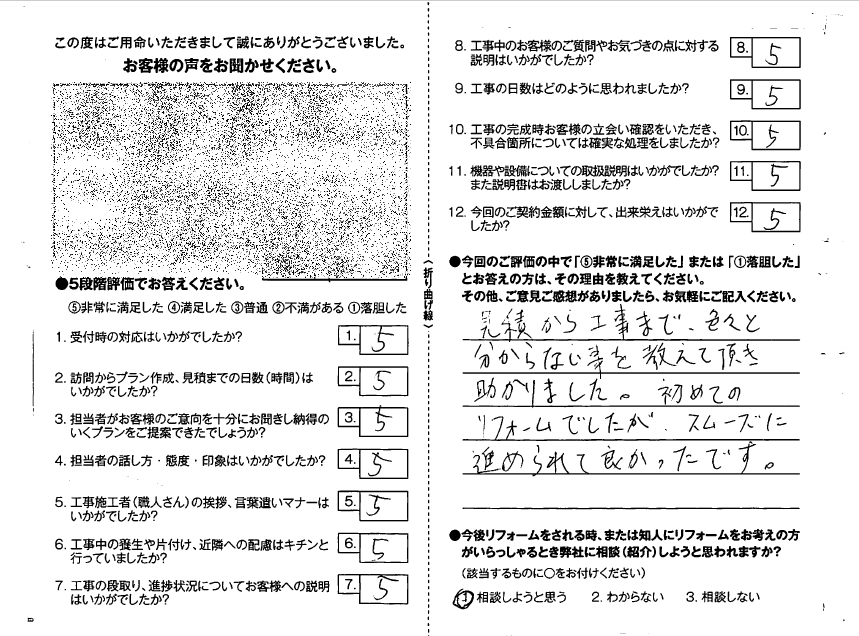 この度はご用命いただきまして誠にありがとうございました。
お客様の声をお聞かせください。
●5段階評価でお答えください。
⑤非常に満足した ④満足した ③普通 ②不満がある ①落胆した
1. 受付時の対応はいかがでしたか? 1. 5
2. 訪問からプラン作成、見積までの日数(時間)は
いかがでしたか? 2. 5
3. 担当者がお客様のご意向を十分にお聞きし納得の
いくプランをご提案できたでしょうか? 3. 5
4. 担当者の話し方・態度・印象はいかがでしたか? 4. 5
5. 工事施工者(職人さん)の挨拶、言葉遣いマナーは
いかがでしたか? 5. 5
6. 工事中の養生や片付け、近隣への配慮はキチンと
行っていましたか? 6. 5
7. 工事の段取り、進捗状況についてお客様への説明
はいかがでしたか? 7. 5
〈折り曲げ線〉
8. 工事中のお客様のご質問やお気づきの点に対する
説明はいかがでしたか? 8. 5
9. 工事の日数はどのように思われましたか? 9. 5
10. 工事の完成時お客様の立会い確認をいただき、
不具合箇所については確実な処理をしましたか? 10. 5
11. 機器や設備についての取扱説明はいかがでしたか?
また説明書はお渡ししましたか? 11. 5
12. 今回のご契約金額に対して、出来栄えはいかがで
したか? 12. 5
●今回のご評価の中で「⑤非常に満足した」または「①落胆した」
とお答えの方は、その理由を教えてください。
その他、ご意見ご感想がありましたら、お気軽にご記入ください。
見積から工事まで、色々と
分からない事を教えて頂き
助かりました。初めての
リフォームでしたが、スムーズに
進められて良かったです。
●今後リフォームをされる時、または知人にリフォームをお考えの方
がいらっしゃるとき弊社に相談(紹介)しようと思われますか?
(該当するものに〇をお付けください)
1. 相談しようと思う 2. わからない 3. 相談しない